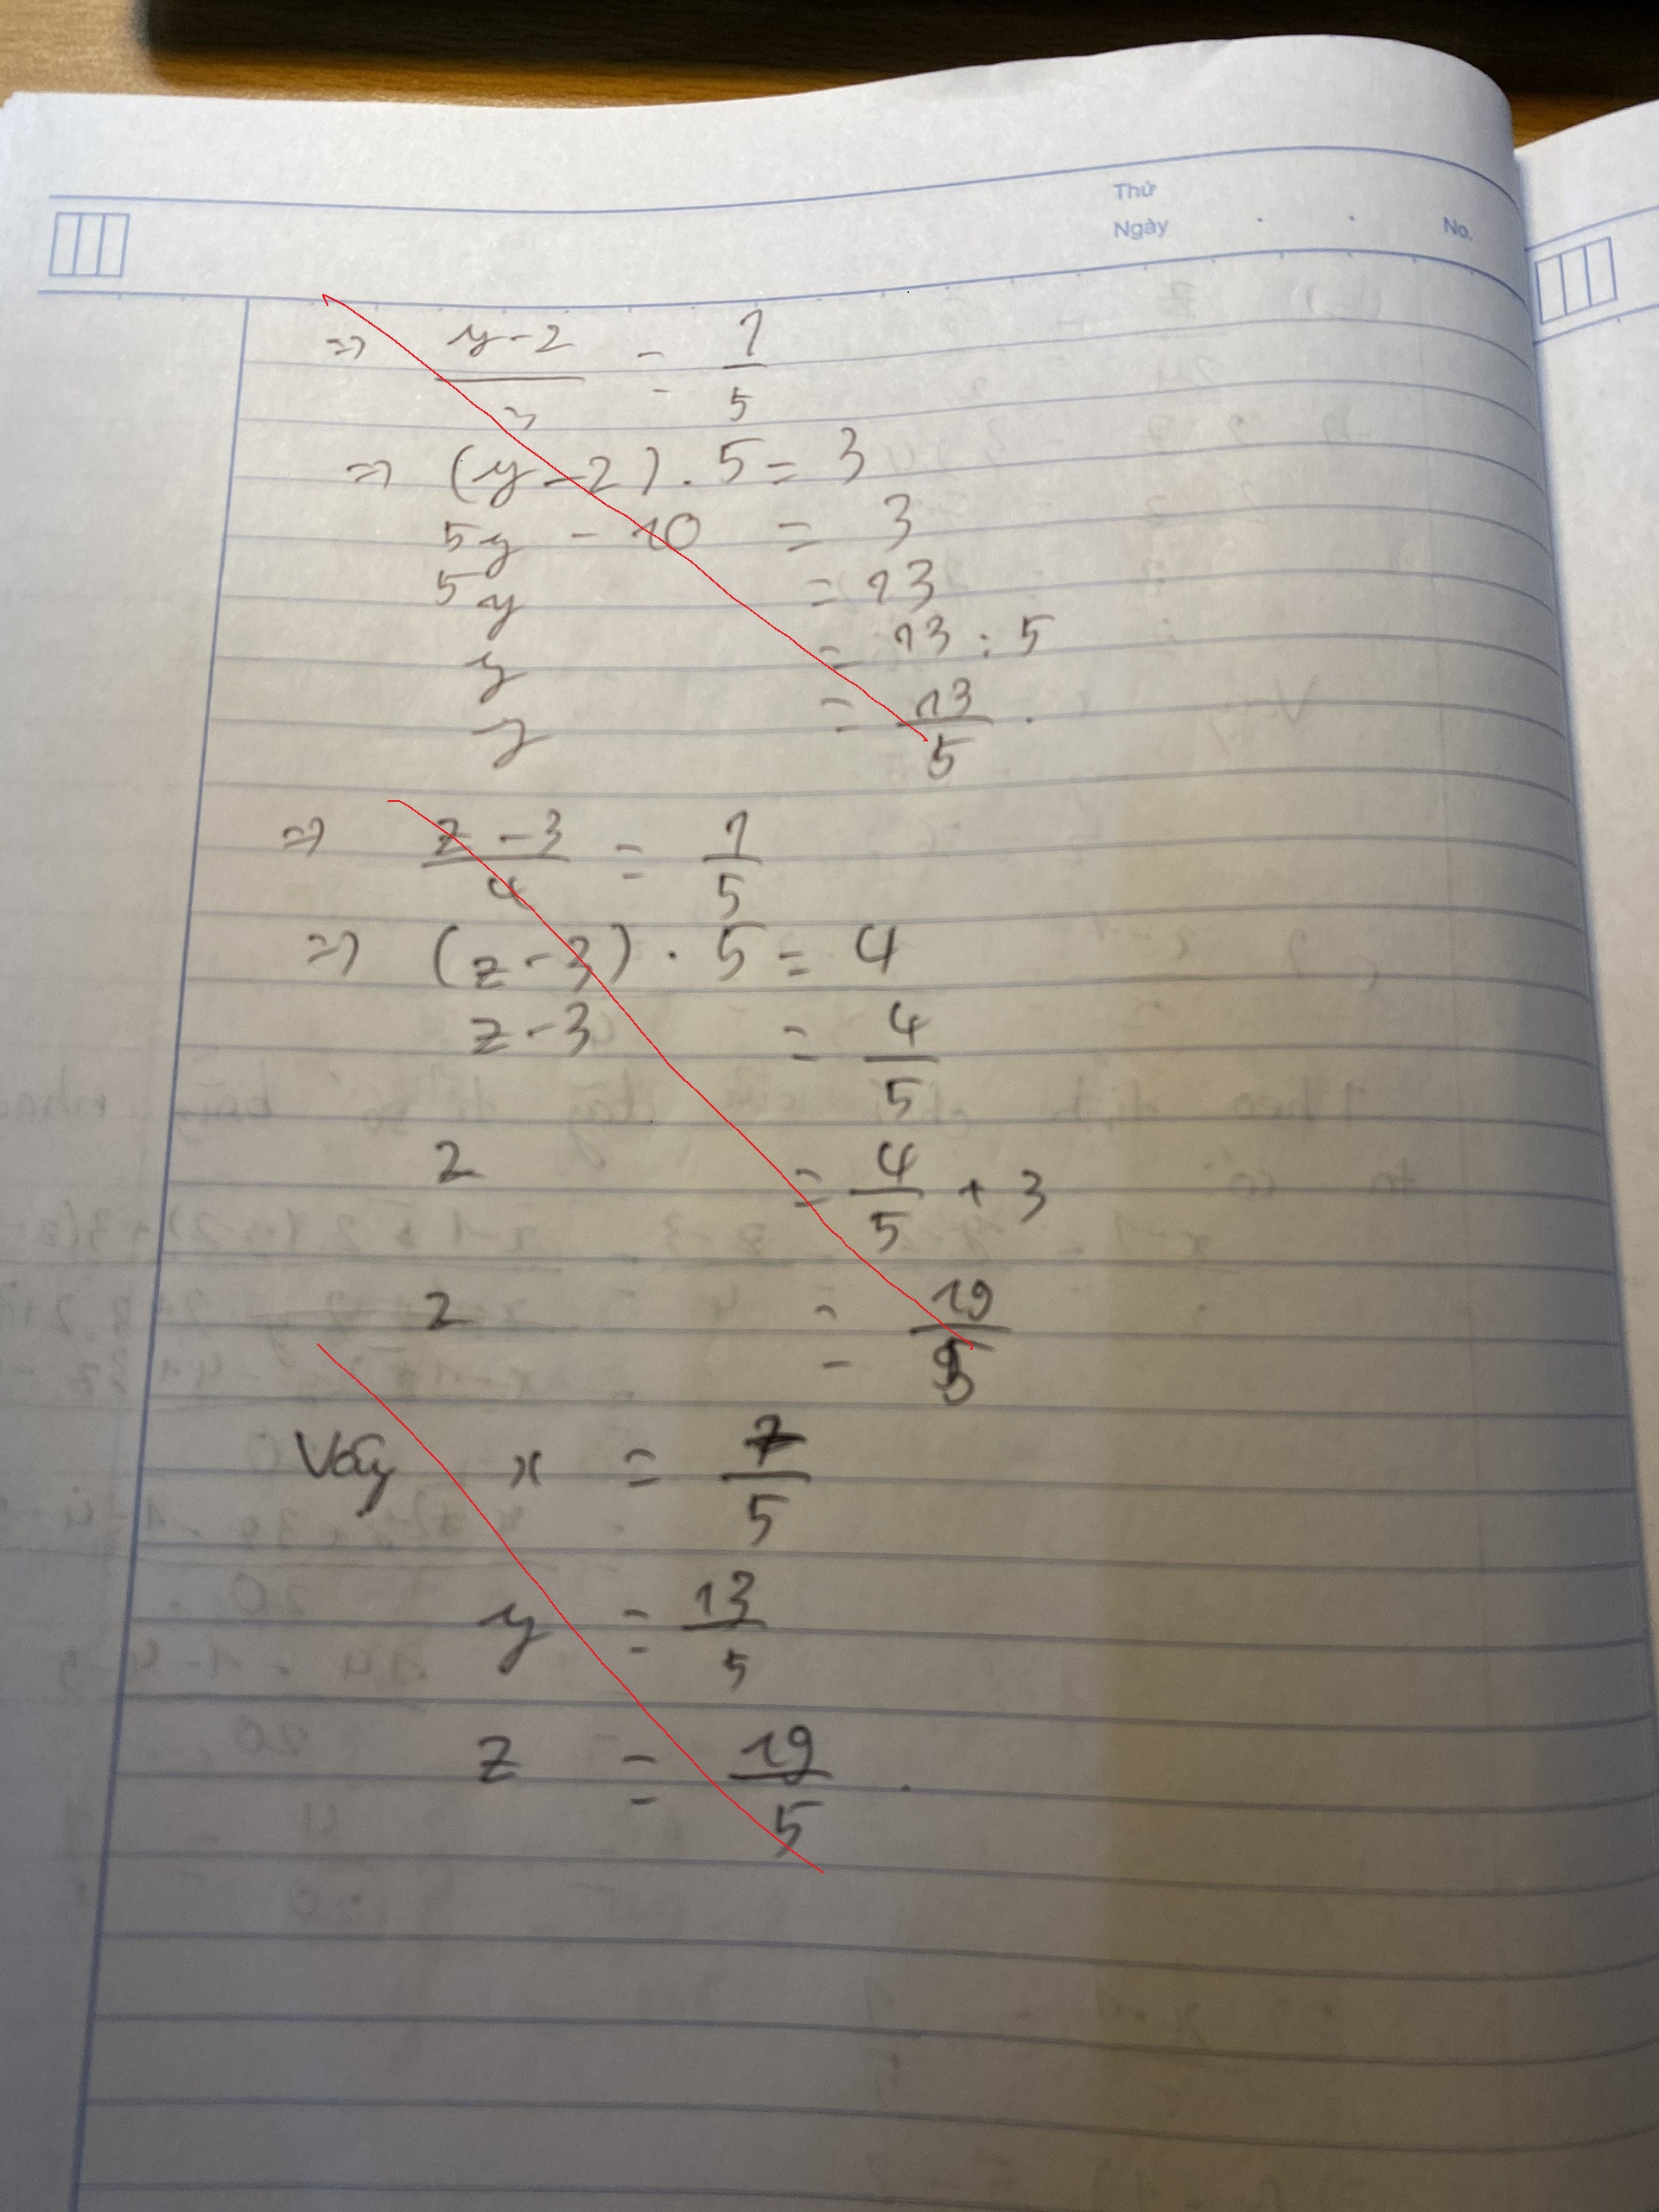 Thứ
Ngày . . No.
=> (y-2)/3 = 1/5
=> (y-2).5 = 3
5y - 10 = 3
5y = 13
y = 13 : 5
y = 13/5 .
=> (z-3)/4 = 1/5
=> (z-3) . 5 = 4
z-3 = 4/5
z = 4/5 + 3
z = 19/5
Vậy x = 7/5
y = 13/5
z = 19/5 .